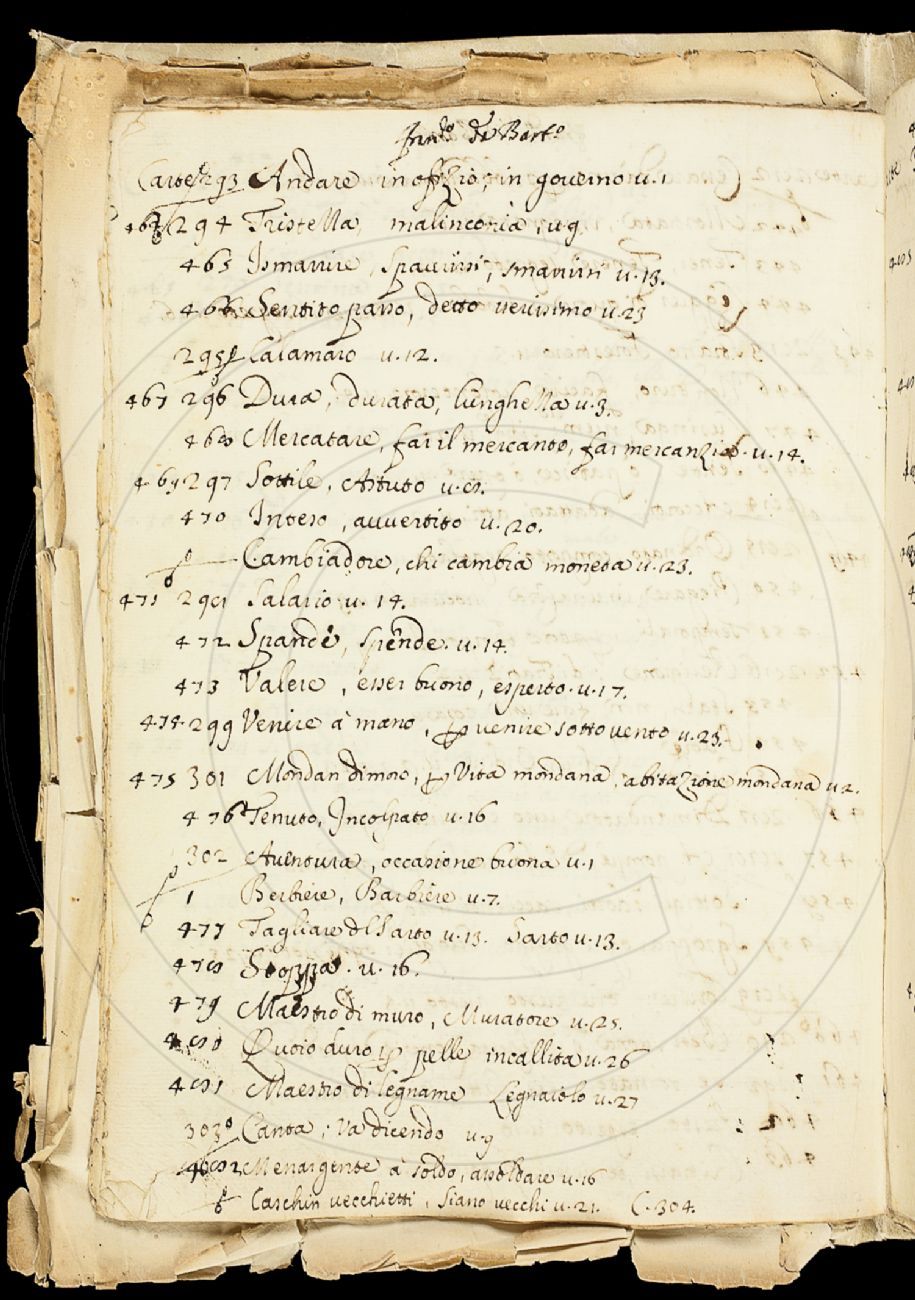 de Bart.o
Carte 293 Andare in offizio, in governo v. 1
294 Tristella, malinconia, v. 9.
465 Ismarrire, spaurirsi, smarirsi v. 13.
466 Sentito parlo, detto verissimo v. 23
295 Calamaro v. 12.
467 296 Dura, durata, lunghella v. 3.
468 Mercatare, far il mercante, far mercanzie. v. 14.
469 297 Sottile, Astuto v. 8.
470 Inteso, avvertito v. 20.
Cambiadore, chi cambia moneta v. 23.
471 298 Salario v. 14.
472 Spande, spende. v. 14.
473 Valere, esser buono, esperto. v. 17.
474. 299 Venire à mano, p venire sotto vento v. 23.
475 301 Mondan dimoro, p Vita mondana, abitazione mondana v. 2.
476 Tenuto, Incolpato v. 16
302 Aventura, occasione buona v. 1
1 Berbiere, Barbiere v. 7.
477 Tagliare del Sarto v. 13. Sarto v. 13.
478 Stoppa. v. 16.
479 Maestro di muro, Muratore v. 25.
480 Quoio duro p pelle incallita v. 26
481 Maestro di legname Legnaiolo v. 27
303 Canta; Va dicendo v. 9
482 Menar gente à soldo, assoldare v. 16
Caschin vecchietti, siano vecchi v. 21. C. 304.